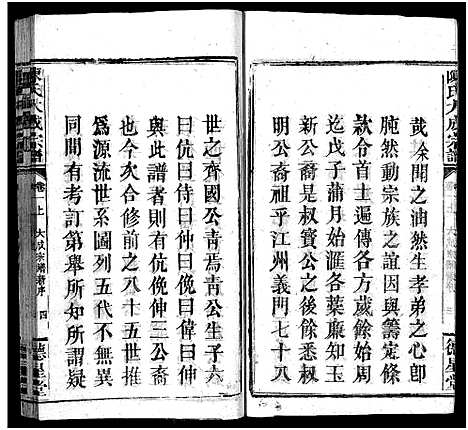 陳氏大成宗譜
卷一上
大成宗譜新序
德星堂
哉余聞之油然生孝弟之心卽
肫然動宗族之誼因與籌定條
款令首士遍傳各方歲餘始周
迄戊子蒲月始滙各葉廉知玉
新公裔是叔寶公之後餘悉柯
明公裔祖乎江州義門七十八
世之齊國公青焉青公生子六
曰伉曰侍曰俛曰偉曰伸曰
與此譜者則有伉俛伸三公裔
也今次合修約之八十五世推
爲源流世系圖列五代不無異
同間有考訂第舉所知所謂疑
陳氏大成宗譜
卷一上
大成宗譜新序
四
德星堂